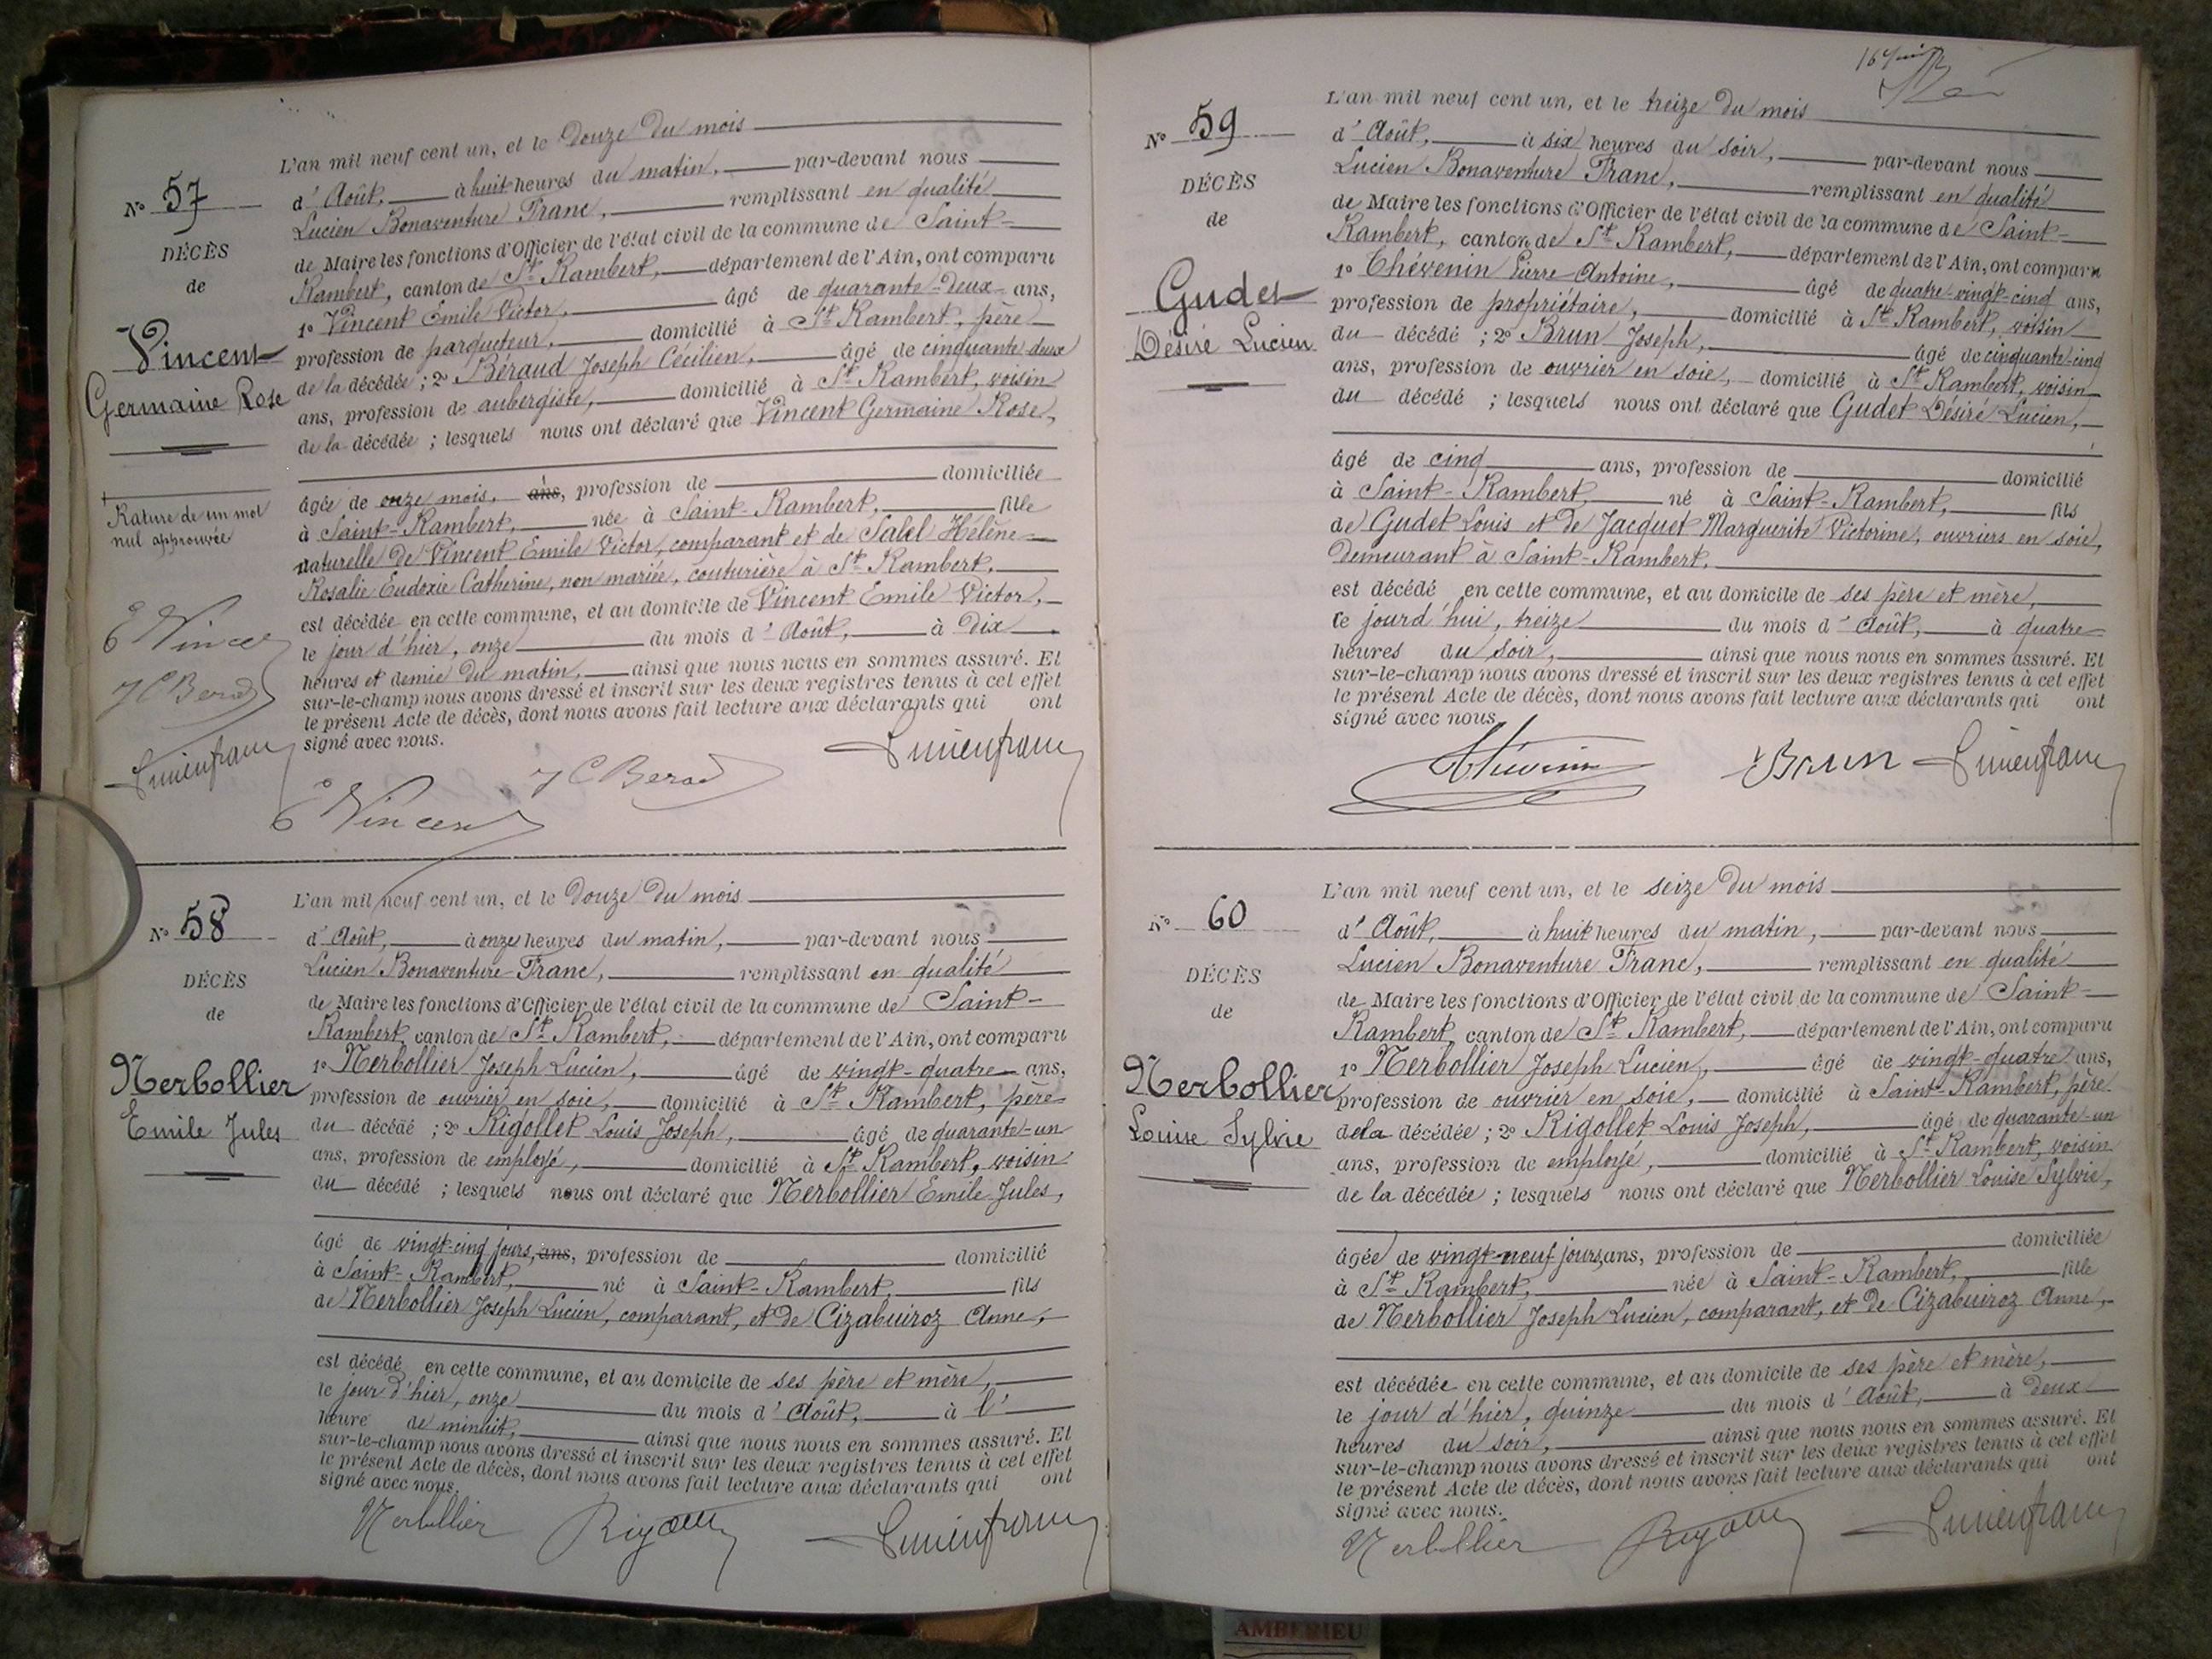 L'an mil neuf cent un, et le douze du mois
N° 57
d'Août, à huit heures du matin, par-devant nous
Lucien Bonaventure Franc, remplissant en qualité
DÉCÈS
de Maire les fonctions d'Officier de l'état civil de la commune de Saint-
de
Rambert, canton de St Rambert, département de l'Ain, ont comparu
1° Vincent Emile Victor, âgé de quarante-deux ans,
Vincent
profession de parqueteur, domicilié à St Rambert, père
Germaine Rose
de la décédée ; 2° Béraud Joseph Cécilien, âgé de cinquante-deux
ans, profession de aubergiste, domicilié à St Rambert, voisin
de la décédée ; lesquels nous ont déclaré que Vincent Germaine Rose,
âgée de onze mois, ans, profession de domiciliée
Rature de un mot
nul approuvée
à Saint-Rambert, née à Saint-Rambert, fille
naturelle de Vincent Emile Victor, comparant et de Salel Hélène
Rosalie Eudoxie Catherine, non mariée, couturière à St Rambert,
est décédée en cette commune, et au domicile de Vincent Emile Victor,
le jour d'hier, onze du mois d'Août, à dix
E Vincent
heures et demie du matin, ainsi que nous nous en sommes assuré. Et
J C Berod
sur-le-champ nous avons dressé et inscrit sur les deux registres tenus à cet effet
le présent Acte de décès, dont nous avons fait lecture aux déclarants qui ont
signé avec nous.
Lucien franc
J C Berod
Lucien franc
E Vincent
L'an mil neuf cent un, et le douze du mois
N° 58
d'Août, à onze heures du matin, par-devant nous
Lucien Bonaventure Franc, remplissant en qualité
DÉCÈS
de Maire les fonctions d'Officier de l'état civil de la commune de Saint-
de
Rambert, canton de St Rambert, département de l'Ain, ont comparu
1° Nerbollier Joseph Lucien, âgé de vingt-quatre ans,
Nerbollier
profession de ouvrier en soie, domicilié à St Rambert, père
Emile Jules
du décédé ; 2° Rigollet Louis Joseph, âgé de quarante-un
ans, profession de employé, domicilié à St Rambert, voisin
du décédé ; lesquels nous ont déclaré que Nerbollier Emile Jules,
âgé de vingt-cinq jours, ans, profession de domicilié
à Saint-Rambert, né à Saint-Rambert, fils
de Nerbollier Joseph Lucien, comparant, et de Cizabuiroz Anne,
est décédé en cette commune, et au domicile de ses père et mère,
le jour d'hier, onze du mois d'Août, à l'
heure de minuit, ainsi que nous nous en sommes assuré. Et
sur-le-champ nous avons dressé et inscrit sur les deux registres tenus à cet effet
le présent Acte de décès, dont nous avons fait lecture aux déclarants qui ont
signé avec nous.
Nerbollier Rigollet Lucien franc
L'an mil neuf cent un, et le treize du mois
N° 59
d'Août, à six heures du soir, par-devant nous
Lucien Bonaventure Franc, remplissant en qualité
DÉCÈS
de Maire les fonctions d'Officier de l'état civil de la commune de Saint-
de
Rambert, canton de St Rambert, département de l'Ain, ont comparu
1° Thévenin Pierre Antoine, âgé de quatre-vingt-cinq ans,
Gudet
profession de propriétaire, domicilié à St Rambert, voisin
Désiré Lucien
du décédé ; 2° Brun Joseph, âgé de cinquante-cinq
ans, profession de ouvrier en soie, domicilié à St Rambert, voisin
du décédé ; lesquels nous ont déclaré que Gudet Désiré Lucien,
âgé de cinq ans, profession de domicilié
à Saint-Rambert, né à Saint-Rambert, fils
de Gudet Louis et de Jacquet Marguerite Victorine, ouvriers en soie,
demeurant à Saint-Rambert,
est décédé en cette commune, et au domicile de ses père et mère,
ce jourd'hui, treize du mois d'Août, à quatre
heures du soir, ainsi que nous nous en sommes assuré. Et
sur-le-champ nous avons dressé et inscrit sur les deux registres tenus à cet effet
le présent Acte de décès, dont nous avons fait lecture aux déclarants qui ont
signé avec nous.
Thévenin Brun Lucien franc
L'an mil neuf cent un, et le seize du mois
N° 60
d'Août, à huit heures du matin, par-devant nous
Lucien Bonaventure Franc, remplissant en qualité
DÉCÈS
de Maire les fonctions d'Officier de l'état civil de la commune de Saint-
de
Rambert, canton de St Rambert, département de l'Ain, ont comparu
1° Nerbollier Joseph Lucien, âgé de vingt-quatre ans,
Nerbollier
profession de ouvrier en soie, domicilié à Saint-Rambert, père
Louise Sylvie
de la décédée ; 2° Rigollet Louis Joseph, âgé de quarante-un
ans, profession de employé, domicilié à St Rambert, voisin
de la décédée ; lesquels nous ont déclaré que Nerbollier Louise Sylvie,
âgée de vingt-neuf jours, ans, profession de domiciliée
à St Rambert, née à Saint-Rambert, fille
de Nerbollier Joseph Lucien, comparant, et de Cizabuiroz Anne,
est décédée en cette commune, et au domicile de ses père et mère,
le jour d'hier, quinze du mois d'Août, à deux
heures du soir, ainsi que nous nous en sommes assuré. Et
sur-le-champ nous avons dressé et inscrit sur les deux registres tenus à cet effet
le présent Acte de décès, dont nous avons fait lecture aux déclarants qui ont
signé avec nous.
Nerbollier Rigollet Lucien franc
AMBERIEU